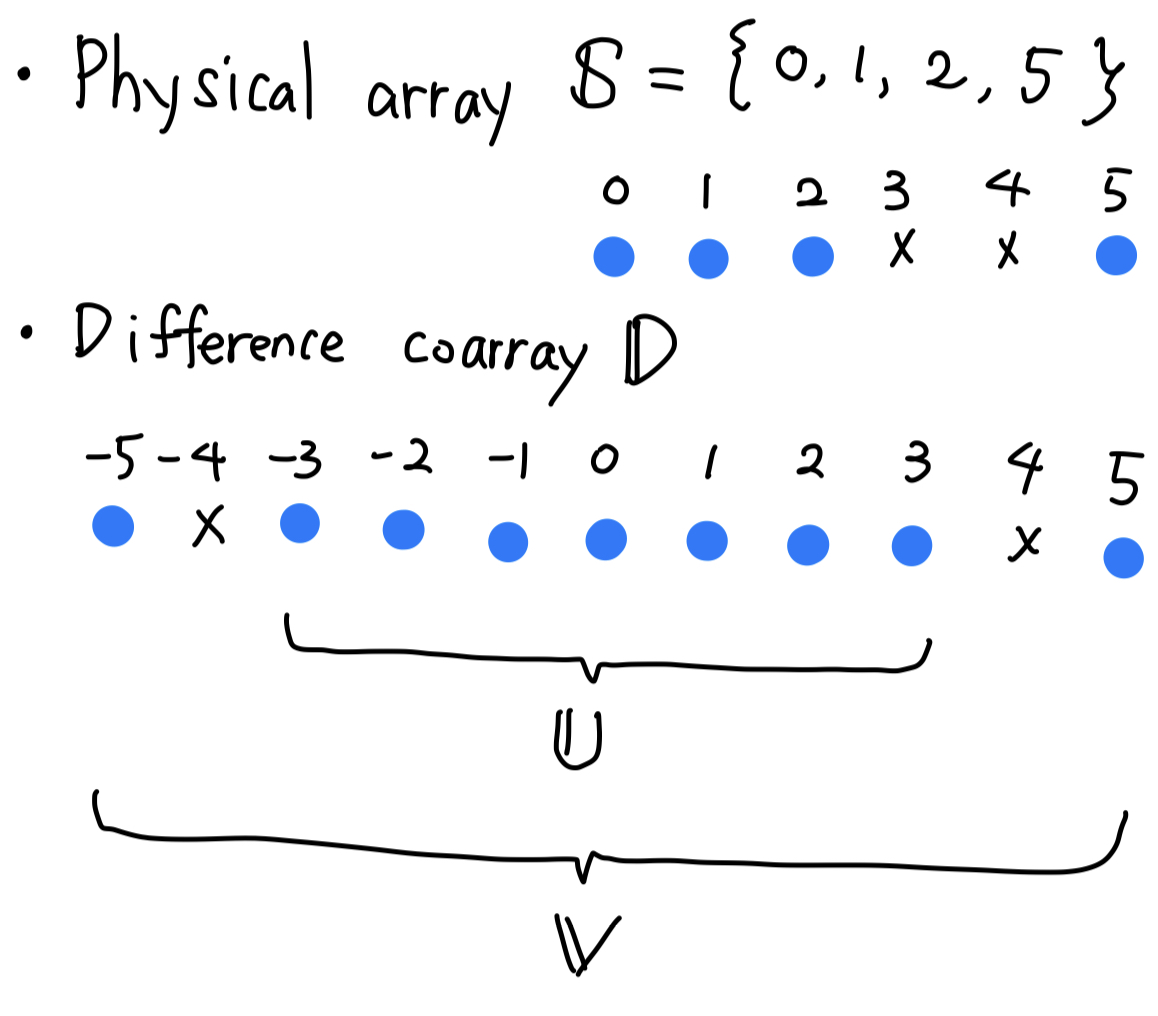 • Physical array 𝕊 = {0, 1, 2, 5}
0 1 2 3 4 5
x x
• Difference coarray 𝔻
-5 -4 -3 -2 -1 0 1 2 3 4 5
x x
𝕌
𝕍